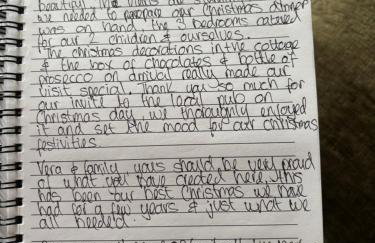 beautiful
we needed to prepare our Christmas dinner
was on hand, the 3 bedrooms catered
for our 2 children & ourselves.
The christmas decorations in the cottage
& the box of chocolates & bottle of
prosecco on arrival really made our
visit special. Thank you so much for
our invite to the local pub on
Christmas day, we thoroughly enjoyed
it and set the mood for our christmas
festivities.
Vera & family, yours should be very proud
of what you have created here. This
has been our best Christmas we have
had for a few years & just what we
all needed.